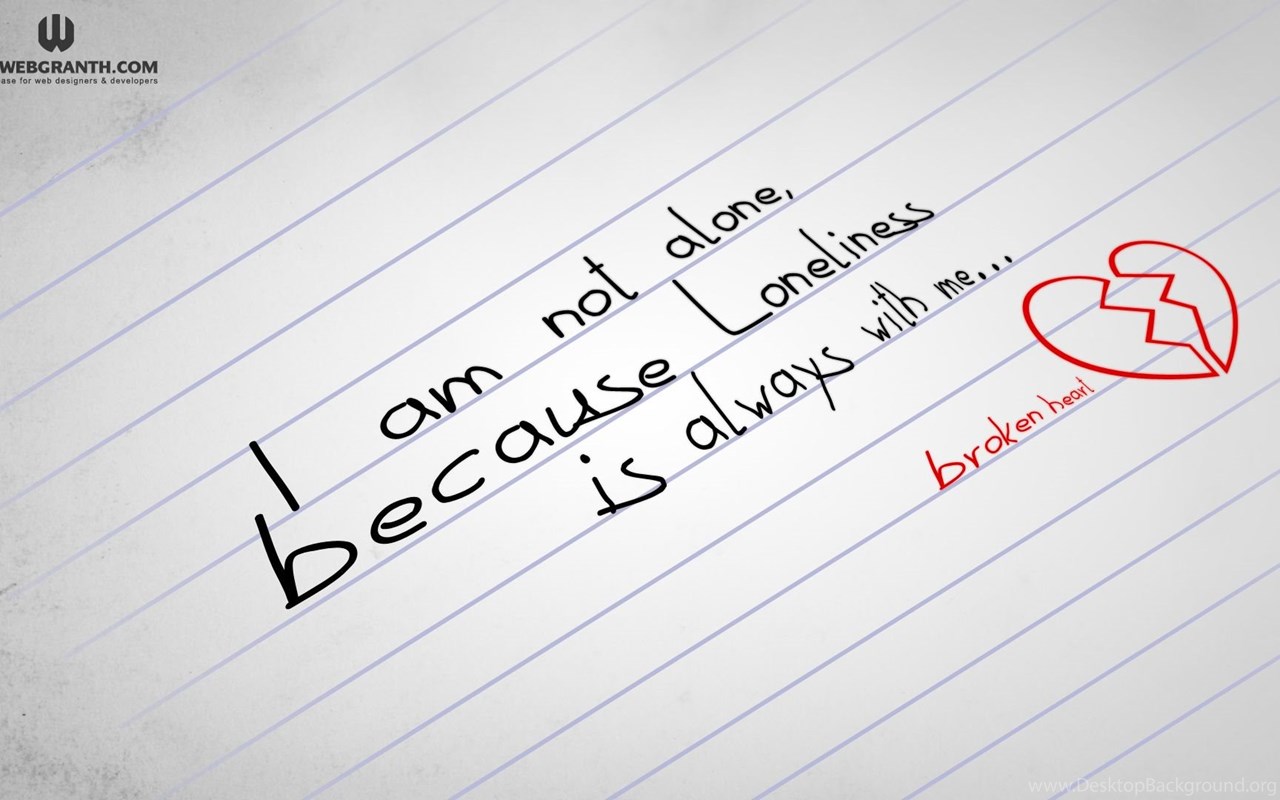 WEBGRANTH.COM
ase for web designers & developers
I am not alone,
because Loneliness
is always with me...
broken heart
www.DesktopBackground.org